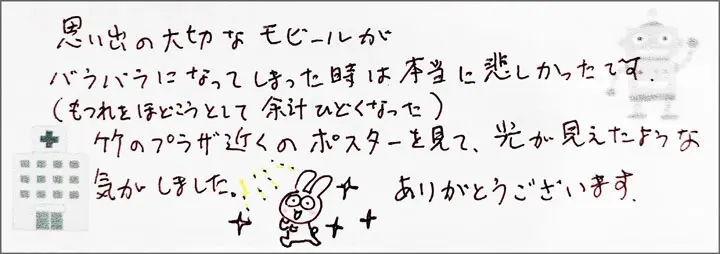 思い出の大切なモビールが
バラバラになってしまった時は本当に悲しかったです.
(もつれをほどこうとして余計ひどくなった)
竹のプラザ近くのポスターを見て、光が見えたような
気がしました。
ありがとうございます.